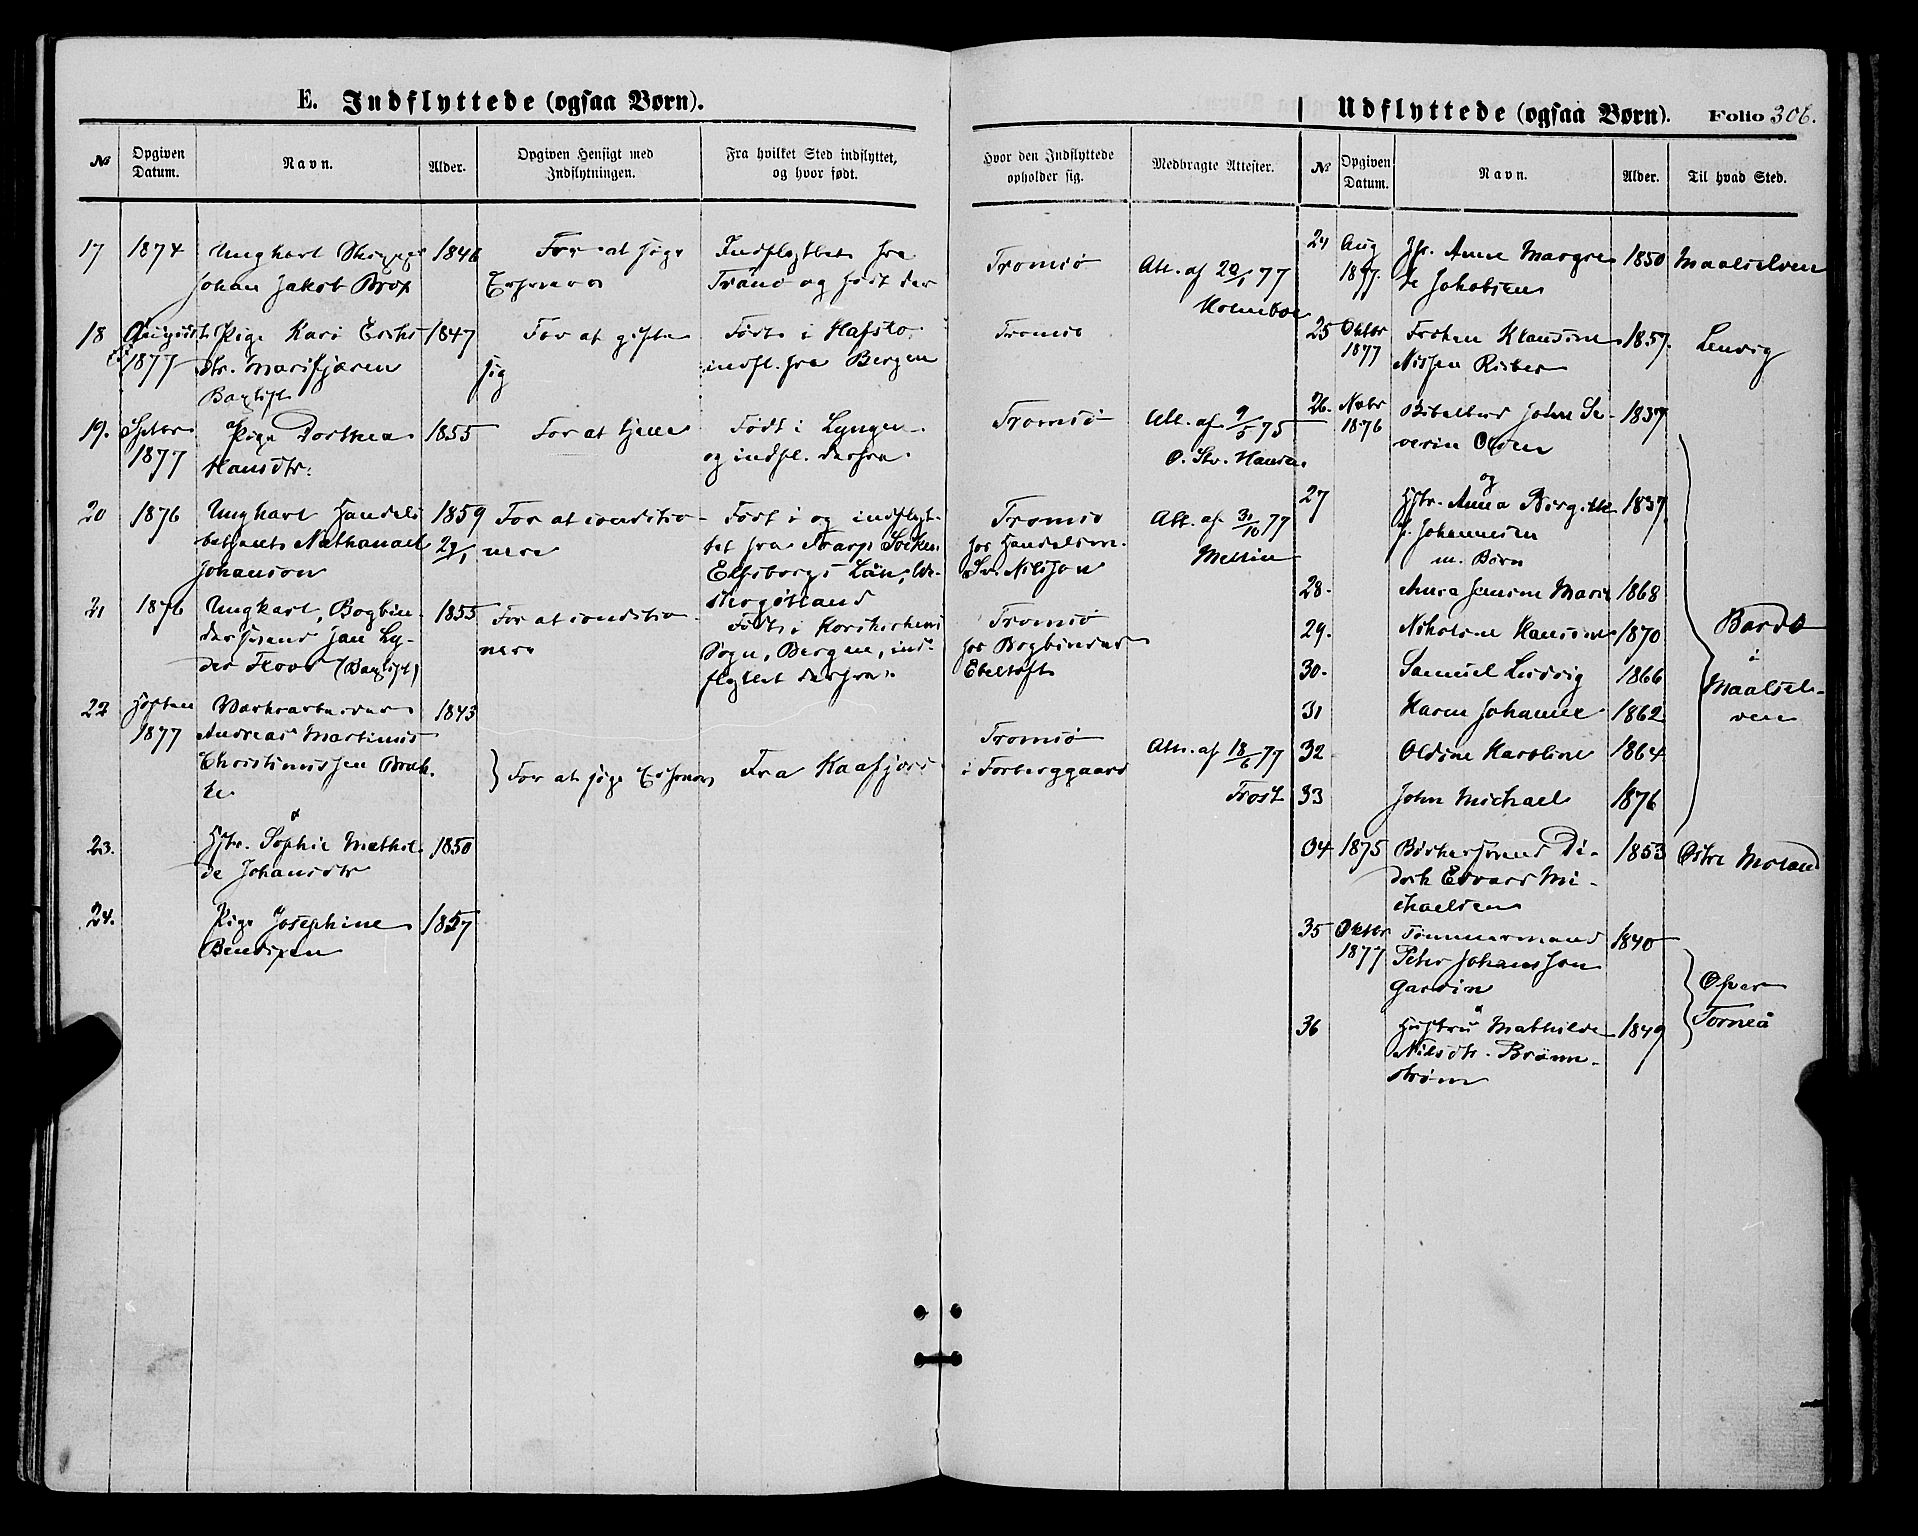 E. Indflyttede (ogsaa Børn).
Udflyttede (ogsaa Børn). Folio 306.
№ Opgiven Datum. Navn. Alder. Opgiven Hensigt med Indflytningen. Fra hvilket Sted indflyttet, og hvor født. Hvor den Indflyttede opholder sig. Medbragte Attester.
№ Opgiven Datum. Navn. Alder. Til hvad Sted.
17 1874 Ungkarl 1846 For at søge Indflyttet fra Tromsø Att. af 77
Johan Jakob Erhverv Tranø og født der Holmboe
18 Pige Kari Eriks 1847 For at gifte Født i Hafslo, Tromsø
1877 dtr. Marifjæren sig indfl. fra Bergen
Baptist
19. Septbr Pige Dorthea 1855 For at tjene Født i Lyngen Tromsø Att. af 9/5 75
1877 Hansdtr: og indfl. derfra. O. Str. Hansen
20 1876 Ungkarl Handels 1859 For at conditio- Født i og indflyt- Tromsø Att. af 31/10 77
betjent Nathanael nere tet fra Socken hos Handelsm. Mellin
Johanson Elfsborgs Län, We- Sv. Nilsson
stergötland
21 1876 Ungkarl, Bogbin- 1855 For at conditio- Født i Korskirkens Tromsø
dersvend Jan Ly- nere Sogn, Bergen, ind- hos Bogbinder
der (Baptist) flyttet derfra. Ebeltoft
22 Høsten 1843
1877 Andreas Martinus Tromsø
Christinussen } For at søge Erhverv Fra Kaafjord i Forberggaard Att. af 18/6 77
ke Frost
&
23. Hstr. Sophie Mathil- 1850
de Johansdtr
24. Pige Josephine 1857
Bendixen
24 Aug Anne Margre- 1850 Maalselven
1877. te Jakobsen
25 Oktbr Frøken Klausine 1857. Lenvig
1877 Nissen
26. Novbr John Se- 1837
1876 verin Olsen
og
27 Hstr. Anna Birgitte 1837
f. Johannesen
m. Børn
28. Anna Jensine Marie 1868
29. Nikoline Hansine 1870 Bardo
30. Samuel Ludvig 1866 i
31 Karen Johanne 1862 Maalsel-
ven
32 Oldine Karoline 1864
33 John Michael 1876
34 1875 Di- 1853 Østre Moland
drik Edvard Mi-
chaelsen
35 Oktbr Tømmermand 1840
1877 Peter Johansson Øfver
Gardin Torneå
&
36 Hustru Mathilde 1849
Nilsdtr. Bränn-
ström